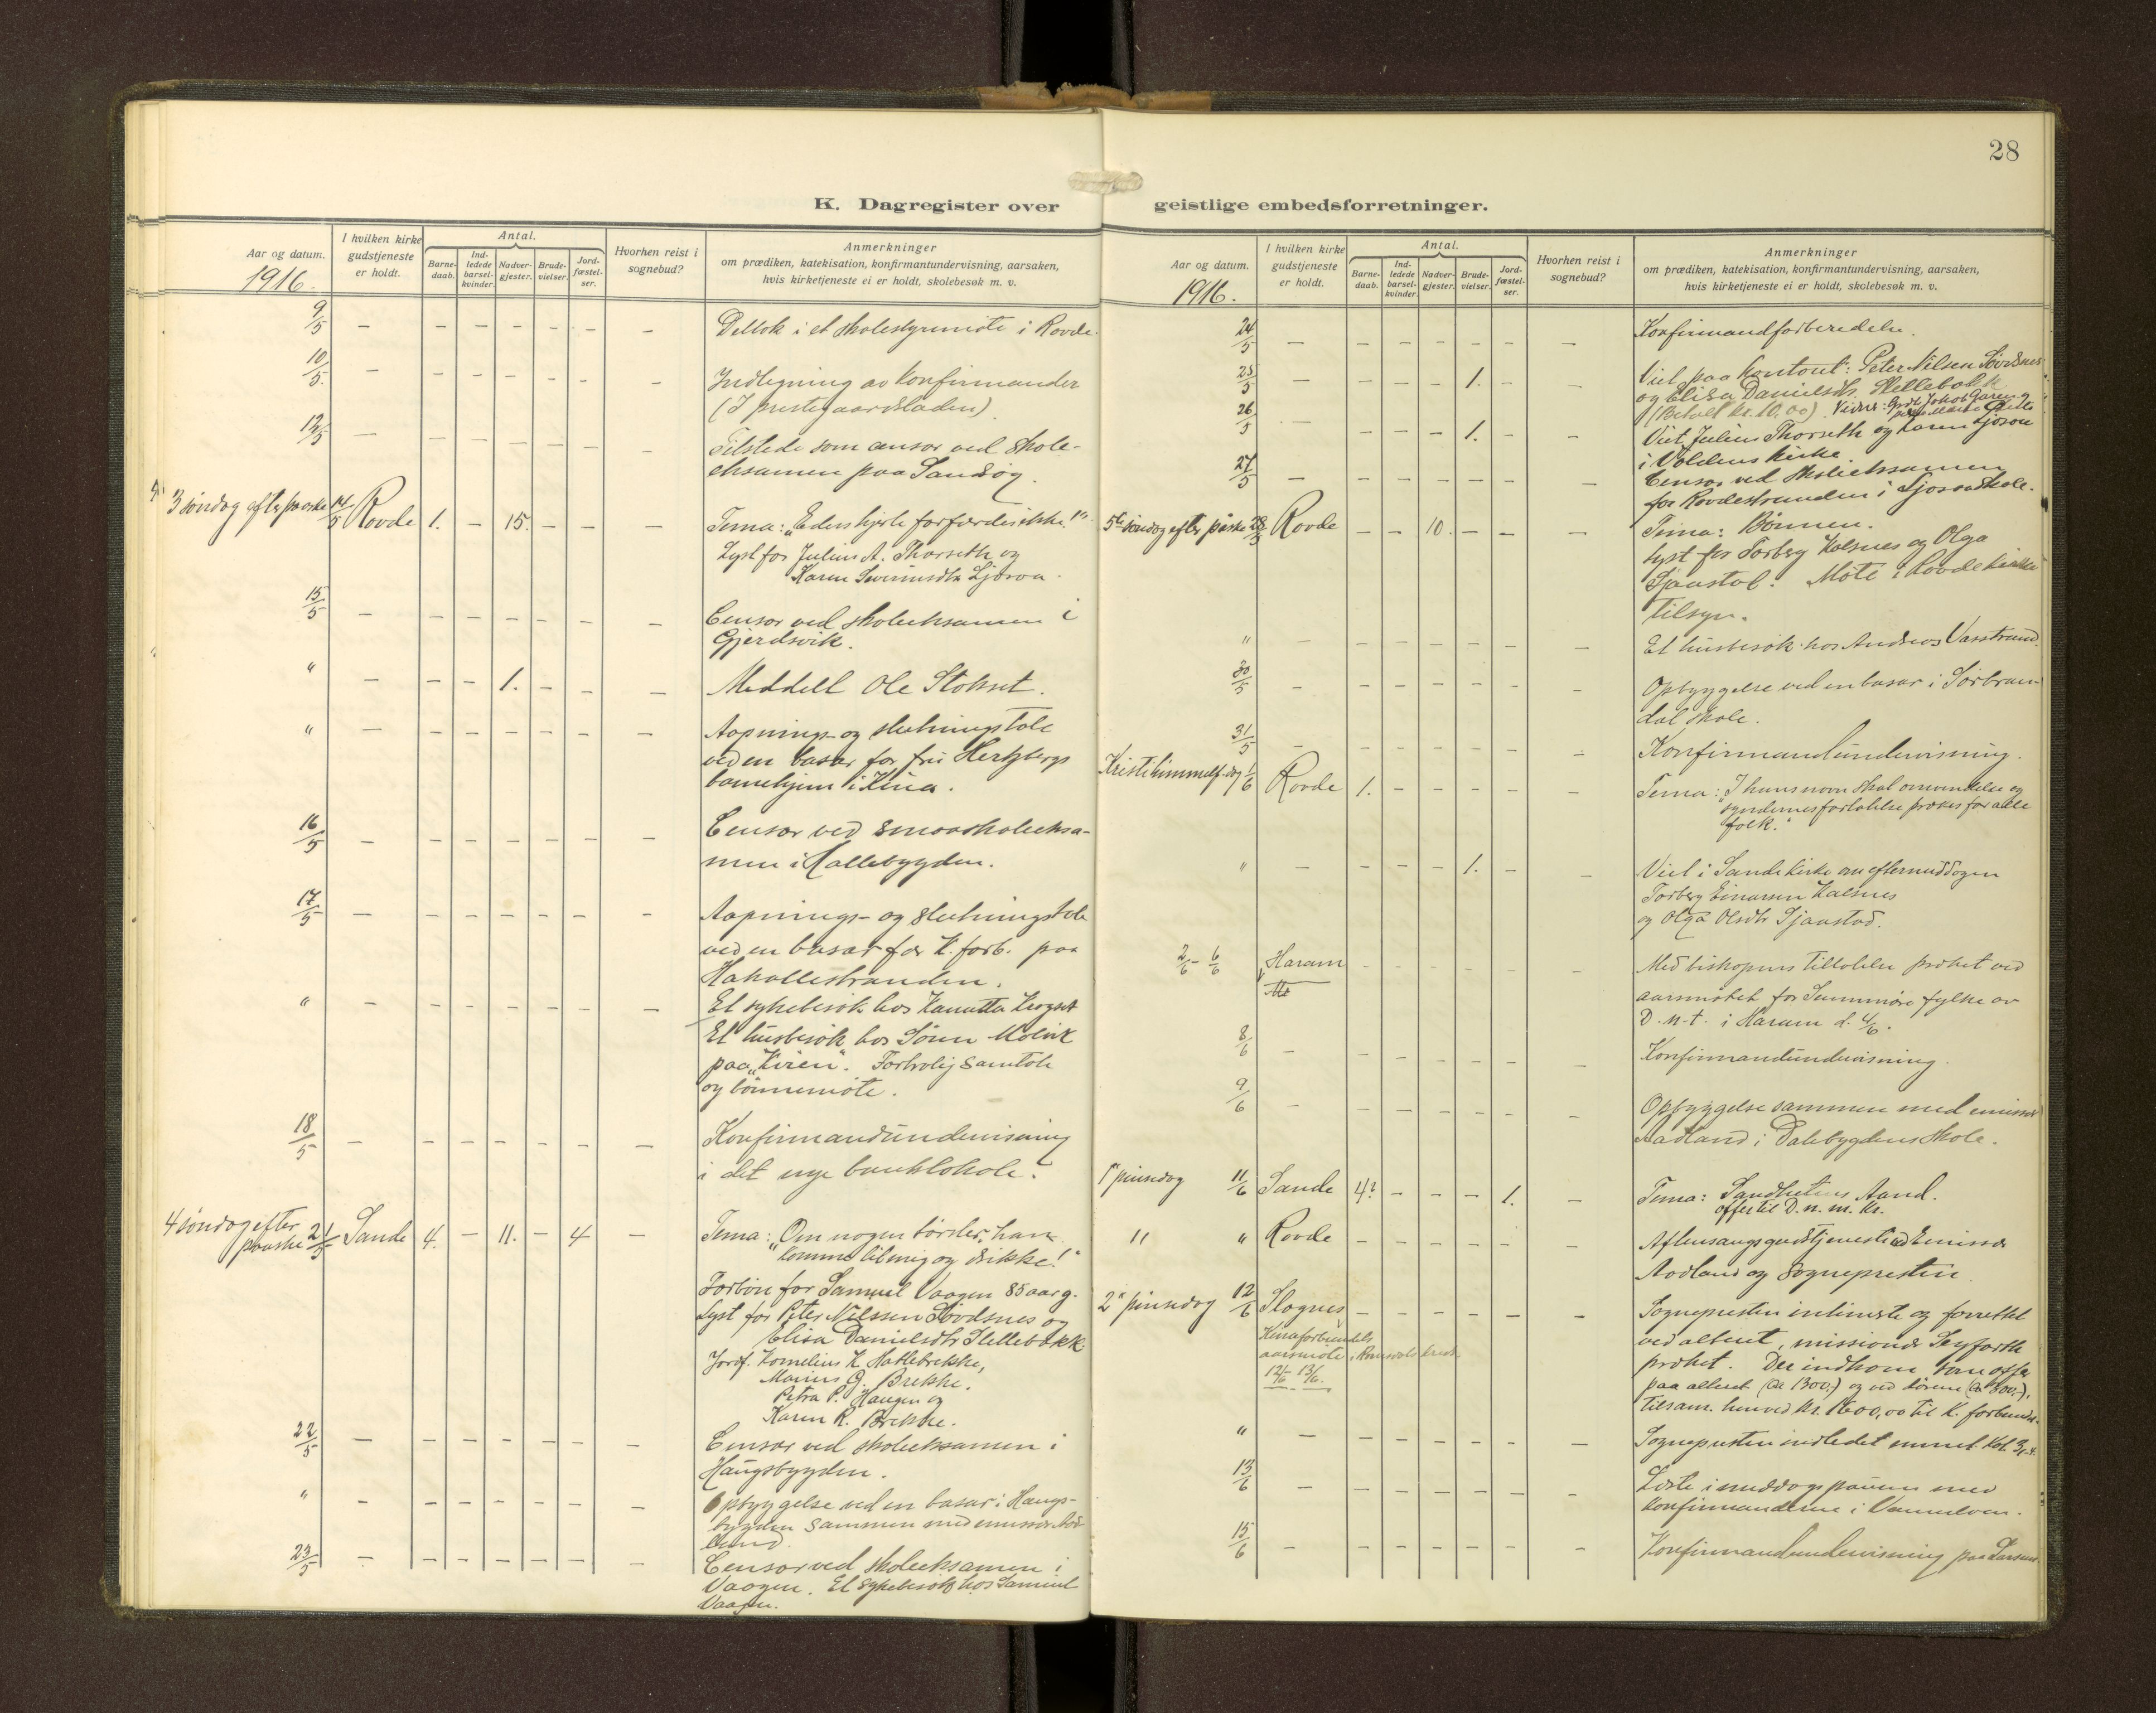 28
K. Dagregister over geistlige embedsforretninger.
Aar og datum.
1916.
I hvilken kirke gudstjeneste er holdt.
Antal.
Barne-daab.
Ind-ledede barsel-kvinder.
Nadver-gjester.
Brude-vielser.
Jord-fæstel-ser.
Hvorhen reist i sognebud?
Anmerkninger
om prædiken, katekisation, konfirmantundervisning, aarsaken,
hvis kirketjeneste ei er holdt, skolebesøk m. v.
9/5 — — — — — — — Deltok i et skolestyremöte i Rovde.
10/5 — — — — — — — Indlegning av konfirmander
(I prestegaardsladen)
12/5 — — — — — — — Tilstede som censor ved skole-
eksamen paa Sandsöy.
3 söndag efter paaske 14/5 Rovde 1. — 15. — — — Tema: "Eders hjerte forfærdes ikke!"
Lyst for Julius A. Thorseth og
Karen Severinsdtr Ljosoa.
15/5 — — — — — — — Censor ved skoleeksamen i
Gjerdsvik.
" — — — 1. — — — Meddelt Ole Stokset.
" — Aapnings- og slutningstale
ved en basar for frü Hertzbergs
barnehjem i Kina.
16/5 — — — — — — — Censor ved smaaskoleeksa-
men i Hallebygden.
17/5 — — — — — — — Aapnings- og slutningstale
ved en basar for K. forb. paa
Hakallestranden.
" — — — — — — — Et sykebesök hos
Et husbesök hos
paa Fortrolig samtale
og bönnemöte.
18/5 — — — — — — — Konfirmandündervisning
i det nye banklokale.
4 söndag efter
paaske 21/5 Sande 4. — 11. — 4 — Tema: "Om nogen törster, han
komme til mig og drikke!"
Forbön for Samuel Vaagen 85 aar g.
Lyst for Peter Nilssen Sövdsnes og
Elisa Danielsdtr
Jordf. Kornelius K. Hatlebrekke,
Marius G. Brekke.
Petra P. Haugen og
Karen R. Brekke.
22/5 — — — — — — — Censor ved skoleeksamen i
Haugsbygden.
" — — — — — — — Opbyggelse ved en basar i Haugs-
bygden sammen med emissær Aad-
land.
23/5 — — — — — — — Censor ved skoleeksamen i
Vaagen. Et sykebesök hos Samuel
Vaagen.
Aar og datum.
1916.
I hvilken kirke gudstjeneste er holdt.
Antal.
Barne-daab.
Ind-ledede barsel-kvinder.
Nadver-gjester.
Brude-vielser.
Jord-fæstel-ser.
Hvorhen reist i sognebud?
Anmerkninger
om prædiken, katekisation, konfirmantundervisning, aarsaken,
hvis kirketjeneste ei er holdt, skolebesøk m. v.
24/5 — — — — — — — Konfirmandforberedelse.
25/5 — — — — 1. — — Viet paa kontoret: Peter Nilsen Sövdsnes
og Elisa Danielsdtr.
(Betalt kr. 10,00)
26/5 — — — — 1. — — Viet Julius Thorseth og Karen Ljosoa
i Voldens kirke.
27/5 — — — — — — — Censor ved skoleeksamen
for Rovdestranden i Ljosoa skole.
5te söndag efter påske 28/5 Rovde — — 10. — — — Tema: Bönnen.
Lyst for Torberg Kalsnes og Olga
Sjaastad. Möte i Rovde kirke
tilsyn.
" — — — — — — — Et husbesök hos Andreas Vasstrand.
30/5 — — — — — — — Opbyggelse ved en basar i Sörbran-
dal skole.
31/5 — — — — — — — Konfirmandündervisning.
Kristi himmelf. dag 1/6 Rovde 1. — — — — — Tema: "I hans navn skal omvendelse og
syndernes forlatelse prækes for alle
folk."
" — — — — 1. — — Viet i Sande kirke om eftermiddagen
Torberg Einarsen Kalsnes
og Olga Olsdtr Sjaastad.
2/6 - 6/6 Haram — — — — — — Med biskopens tillatelse præket ved
aarsmötet for Sunnmöre fylke av
D. n. t. i Haram d. 4/6.
8/6 — — — — — — — Konfirmandündervisning.
9/6 — — — — — — — Opbyggelse sammen med emissær
Aadland i Dalebygdens skole.
1ste pinsedag 11/6 Sande 4 — — — 1. — Tema: Sandhetens Aand.
Offer til D. n. m. kr.
" " Rovde — — — — — — Aftensangsgudstjeneste ved Emissær
Aadland og Sognepresten
2den pinsedag 12/6 Slagnes — — — — — — Sognepresten intimerte og forrettet
Kinaforbundets
aarsmöte i Romsdals kreds
12/6 - 13/6.
ved alteret, missionær Seyfarth
præket. Der indkom som offer
paa alteret (ca 1300,-) og ved dörene (ca 300,-),
tilsam. henved kr. 1600,00 til K. forbundet.
" — — — — — — — Sognepresten indledet emnet Kol. 3, 1-4.
13/6 — — — — — — — Læste i middagspausen med
konfirmanderne i Vannelven.
15/6 — — — — — — — Konfirmandundervisning paa Larsnes